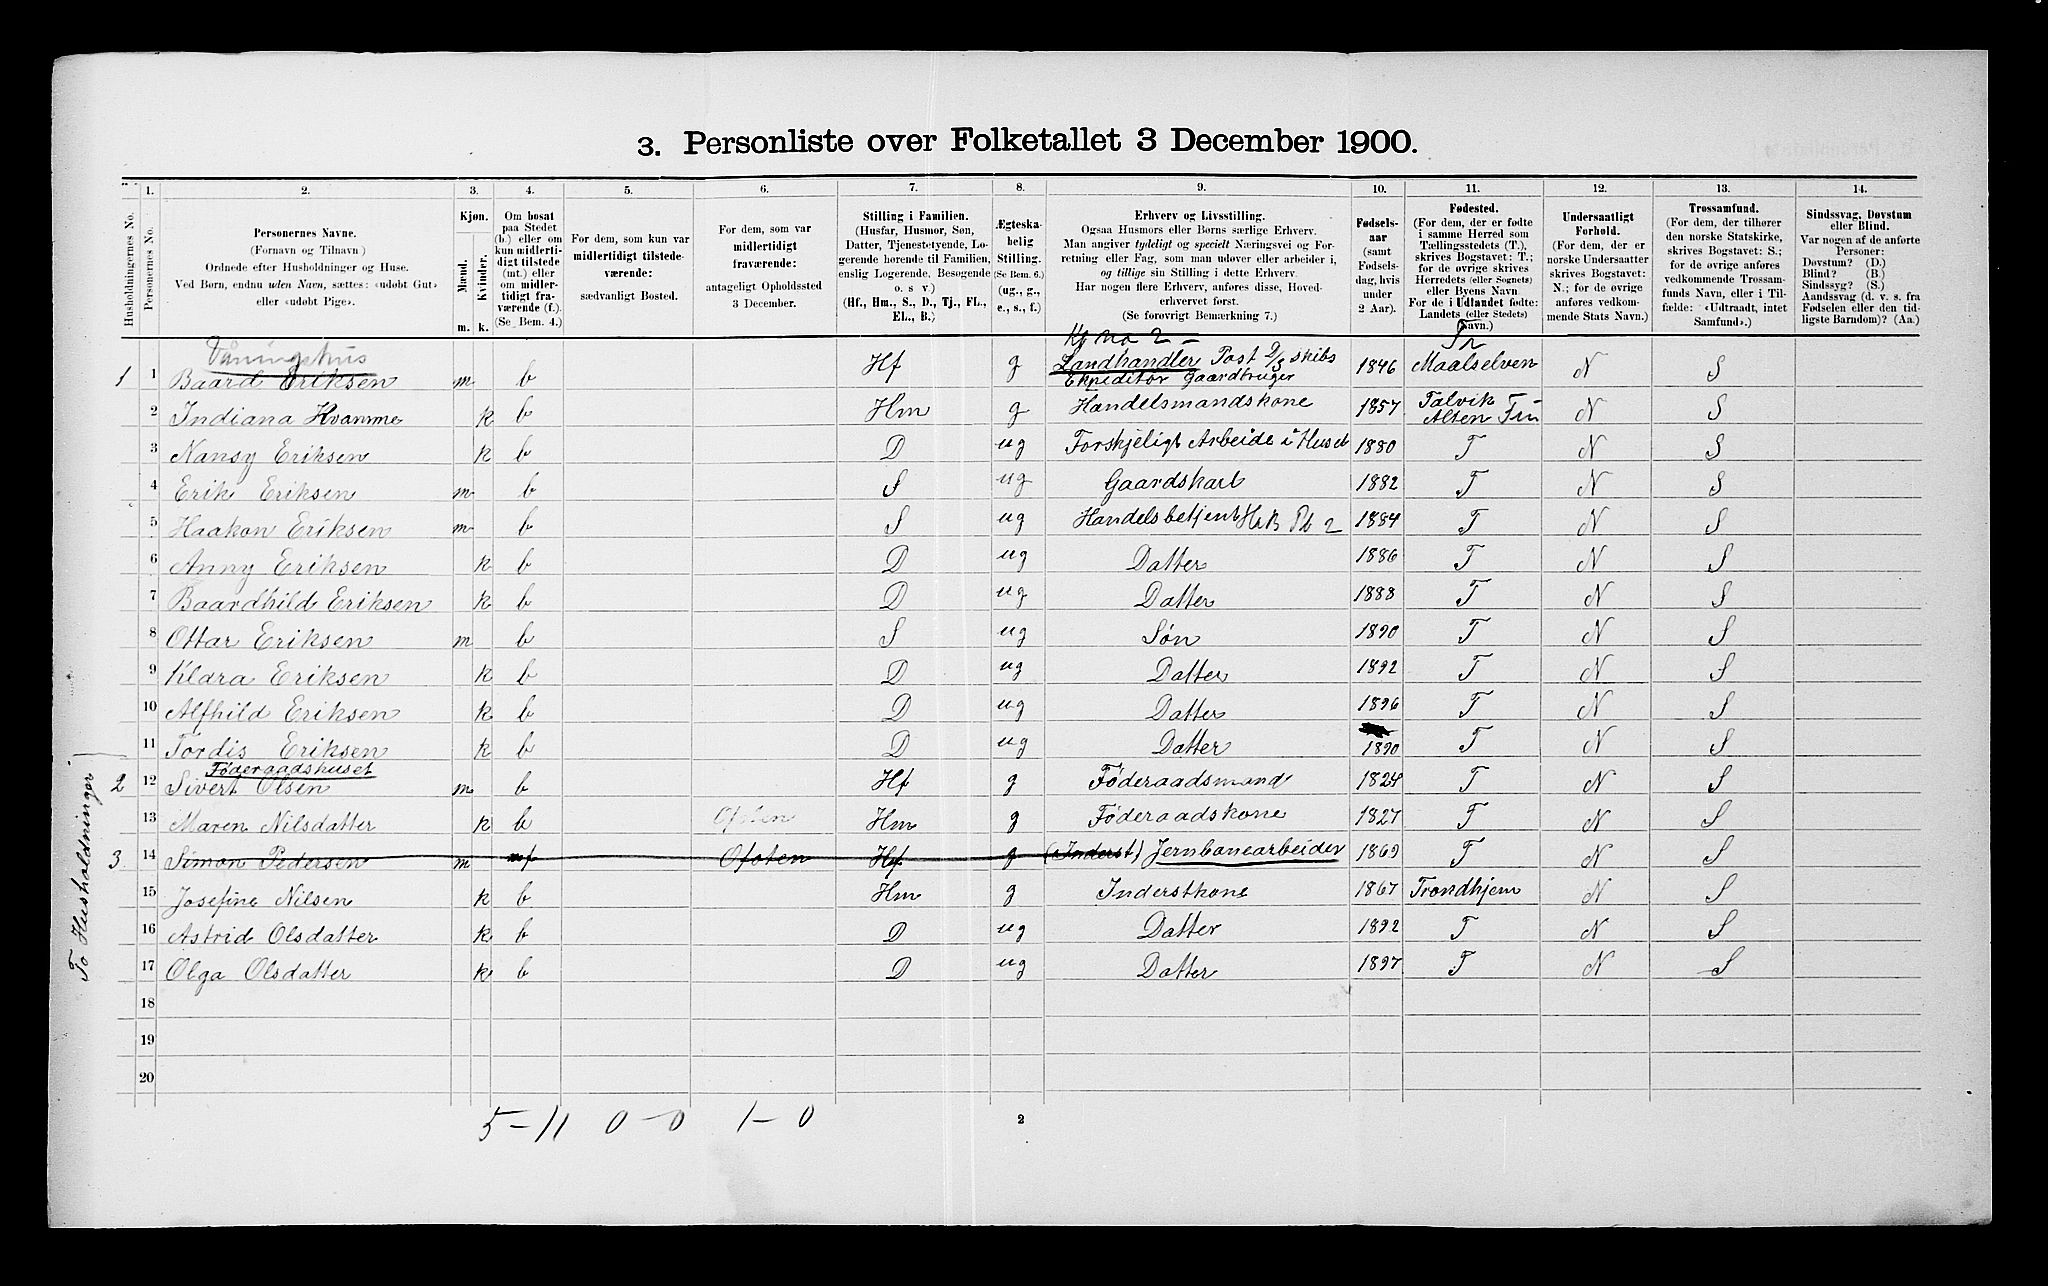 3. Personliste over Folketallet 3 December 1900.
Husholdningernes No.
1. Personernes No.
2. Personernes Navne.
(Fornavn og Tilnavn)
Ordnede efter Husholdninger og Huse.
Ved Børn, endnu uden Navn, sættes: «udøbt Gut»
eller «udøbt Pige».
3. Kjøn.
Mænd. m.
Kvinder. k.
4. Om bosat
paa Stedet
(b.) eller om
kun midlerti-
digt tilstede
(mt.) eller
om midler-
tidigt fra-
værende (f.).
(Se Bem. 4.)
5. For dem, som kun var
midlertidigt tilstede-
værende:
sædvanligt Bosted.
6. For dem, som var
midlertidigt
fraværende:
antageligt Opholdssted
3 December.
7. Stilling i Familien.
(Husfar, Husmor, Søn,
Datter, Tjenestetyende, Lo-
gerende hørende til Familien,
enslig Logerende, Besøgende
o. s v.)
(Hf., Hm., S., D., Tj., FL.,
EL., B.)
8. Ægteska-
belig
Stilling.
(Se Bem. 6.)
(ug., g.,
e., s., f.)
9. Erhverv og Livsstilling.
Ogsaa Husmors eller Børns særlige Erhverv.
Man angiver tydeligt og specielt Næringsvei og For-
retning eller Fag, som man udøver eller arbeider i,
og tillige sin Stilling i dette Erhverv.
Har nogen flere Erhverv, anføres disse, Hoved-
erhvervet først.
(Se forøvrigt Bemærkning 7.)
10. Fødsels-
aar
(samt
Fødsels-
dag, hvis
under
2 Aar).
11. Fødested.
(For dem, der er fødte
i samme Herred som
Tællingsstedets (T.),
skrives Bogstavet: T.;
for de øvrige skrives
Herredets (eller Sognets)
eller Byens Navn
For de i Udlandet fødte:
Landets (eller Stedets)
Navn.)
12. Undersaatligt
Forhold.
(For dem, der er
norske Undersaatter
skrives Bogstavet:
N.; for de øvrige
anføres vedkom-
mende Stats Navn.)
13. Trossamfund.
(For dem, der tilhører
den norske Statskirke,
skrives Bogstavet: S.;
for de øvrige anføres
vedkommende Trossam-
funds Navn, eller i Til-
fælde: «Udtraadt, intet
Samfund».)
14. Sindssvag, Døvstum
eller Blind.
Var nogen af de anførte
Personer:
Døvstum? (D.)
Blind? (B.)
Sindssyg? (S.)
Aandssvag (d. v. s. fra
Fødselen eller den tid-
ligste Barndom)? (Aa.)
Våningshus
No 2 - Tr
1 1 Baard Eriksen m b Hf g Landhandler Post D/S skibs Expeditør Gaardbruger 1846 Maalselven N S
2 Indiana Hvamme k b Hm g Handelsmandskone 1857 Talvik Alten Fin N S
3 Nansy Eriksen k b D ug Forskjeligt Arbeide i Huset 1880 T N S
4 Erik Eriksen m b S ug Gaardskarl 1882 T N S
5 Haakon Eriksen m b S ug Handelsbetjent 2 1884 T N S
6 Anny Eriksen k b D ug Datter 1886 T N S
7 Baardhild Eriksen k b D ug Datter 1888 T N S
8 Ottar Eriksen m b S ug Søn 1890 T N S
9 Klara Eriksen k b D ug Datter 1892 T N S
10 Alfhild Eriksen k b D ug Datter 1896 T N S
11 Tordis Eriksen k b D ug Datter 1890 T N S
Føderaadshuset
2 12 Sivert Olsen m b Hf g Føderaadsmand 1824 T N S
13 Maren Nilsdatter k b Ofoten Hm g Føderaadskone 1827 T N S
3 14 Simon Pedersen m f Ofoten Hf g (Inderst) Jernbanearbeider 1869 T N S
15 Josefine Nilsen k b Hm g Inderstkone 1867 Trondhjem N S
16 Astrid Olsdatter k b D ug Datter 1892 T N S
17 Olga Olsdatter k b D ug Datter 1897 T N S
18
19
20
To Husholdninger
5 - 11 0 - 0 1 - 0
2